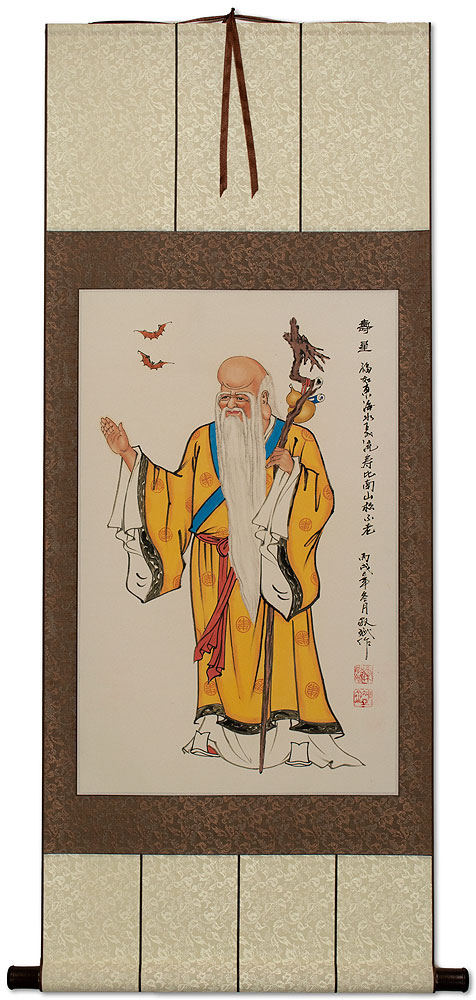 壽星 福如東海水長流壽比南山松不老 丙戌年冬月 敬斌作